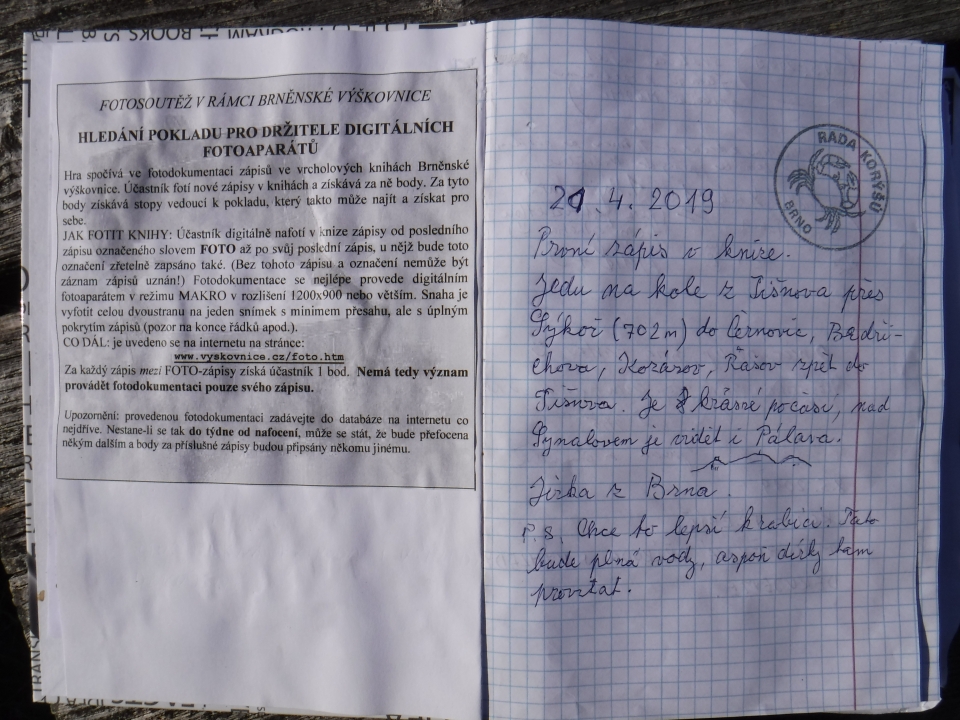 FOTOSOUTĚŽ V RÁMCI BRNĚNSKÉ VÝŠKOVNICE
HLEDÁNÍ POKLADU PRO DRŽITELE DIGITÁLNÍCH
FOTOAPARÁTŮ
Hra spočívá ve fotodokumentaci zápisů ve vrcholových knihách Brněnské
výškovnice. Účastník fotí nové zápisy v knihách a získává za ně body. Za tyto
body získává stopy vedoucí k pokladu, který takto může najít a získat pro
sebe.
JAK FOTIT KNIHY: Účastník digitálně nafotí v knize zápisy od posledního
zápisu označeného slovem FOTO až po svůj poslední zápis, u nějž bude toto
označení zřetelně zapsáno také. (Bez tohoto zápisu a označení nemůže být
záznam zápisů uznán!) Fotodokumentace se nejlépe provede digitálním
fotoaparátem v režimu MAKRO v rozlišení 1200x900 nebo větším. Snaha je
vyfotit celou dvoustranu na jeden snímek s minimem přesahu, ale s úplným
pokrytím zápisů (pozor na konce řádků apod.).
CO DÁL: je uvedeno se na internetu na stránce:
www.vyskovnice.cz/foto.htm
Za každý zápis mezi FOTO-zápisy získá účastník 1 bod. Nemá tedy význam
provádět fotodokumentaci pouze svého zápisu.
Upozornění: provedenou fotodokumentaci zadávejte do databáze na internetu co
nejdříve. Nestane-li se tak do týdne od nafocení, může se stát, že bude přefocena
někým dalším a body za příslušné zápisy budou připsány někomu jinému.
RADA KORÝŠŮ
BRNO
21.4.2019
První zápis v knize.
Jedu na kole z Tišnova přes
Sýkoř (702m) do Černovic, Bedři-
chova, Kozárov, Rašov zpět do
Tišnova. Je krásné počasí, nad
Synalovem je vidět i Pálava.
Jirka z Brna.
P.S. Chce to lepší krabici. Tato
bude plná vody, aspoň dírky tam
provrtat.